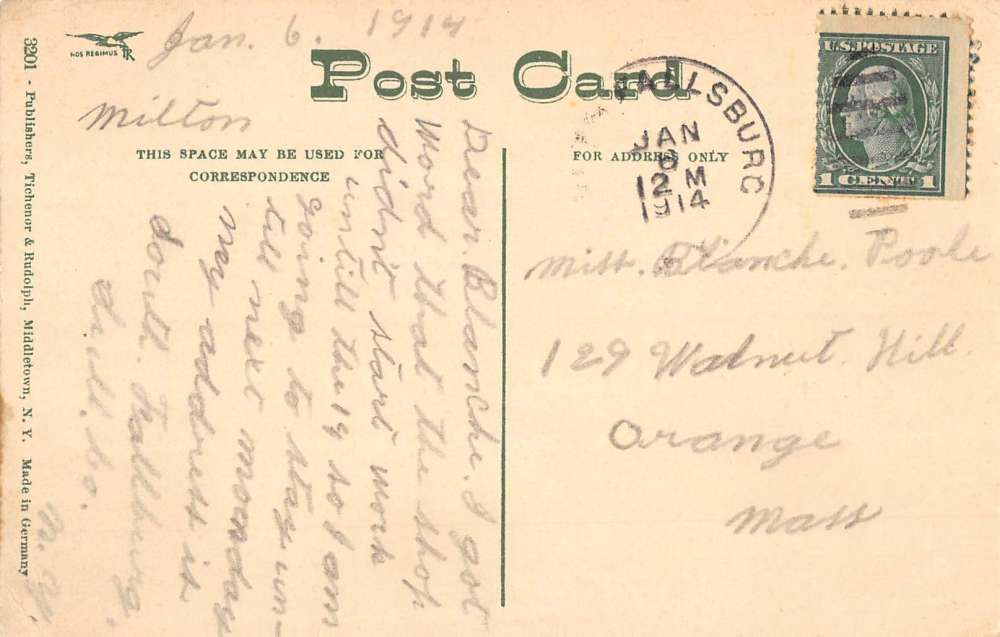 Jan. 6. 1914
NOS REGIMUS TR
Post Card
FALLSBURG
JAN
6
12 M
1914
U.S. POSTAGE
1 CENT 1
Milton
THIS SPACE MAY BE USED FOR
CORRESPONDENCE
FOR ADDRESS ONLY
Dear Blanche. I got
Word that the shop
didn't start work
until the 19 so I am
going to stay un-
till next monday
my address is
South Fallsburg
Sull. Co.
N. Y.
Miss. Blanche. Poole
129 Walnut. Hill.
Orange
Mass
3201 - Publishers, Tichenor & Rudolph, Middletown, N. Y. Made in Germany